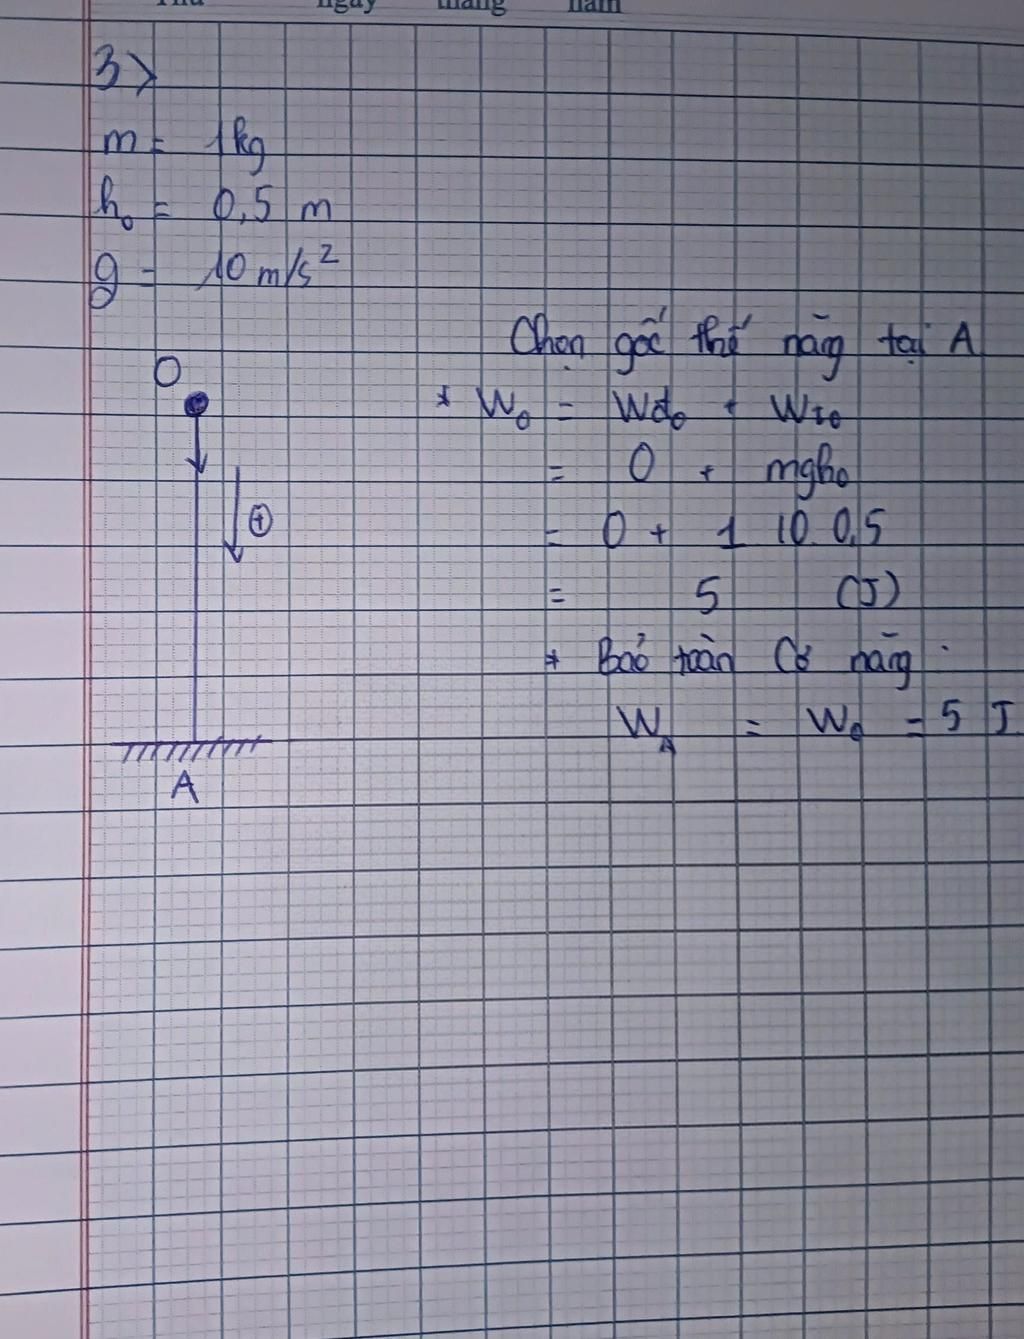 Thứ ngày tháng năm
3>
m = 1kg
h₀ = 0,5 m
g = 10 m/s²
Chọn gốc thế năng tại A
O
* W₀ = Wđ₀ + Wt₀
= 0 + mgh₀
⊕
= 0 + 1 10. 0,5
= 5 (J)
* Bảo toàn Cơ năng :
W_A = W₀ = 5 J
A